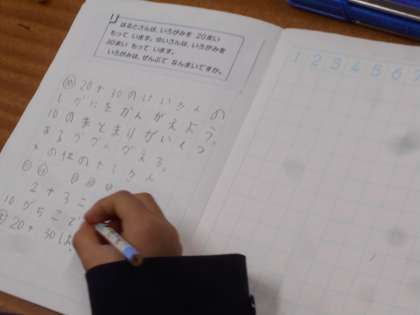 はるとさんは、いろがみを 20まい
もって います。ゆいさんは、いろがみを
30まい もって います。
いろがみは、ぜんぶで なんまいですか。
20+30のけいさんの
しかたをかんがえよう。
10のまとまりがいくつ
あるかかんがえる。
2+3=
10が5こで
20+30は
1 2 3 4 5 6